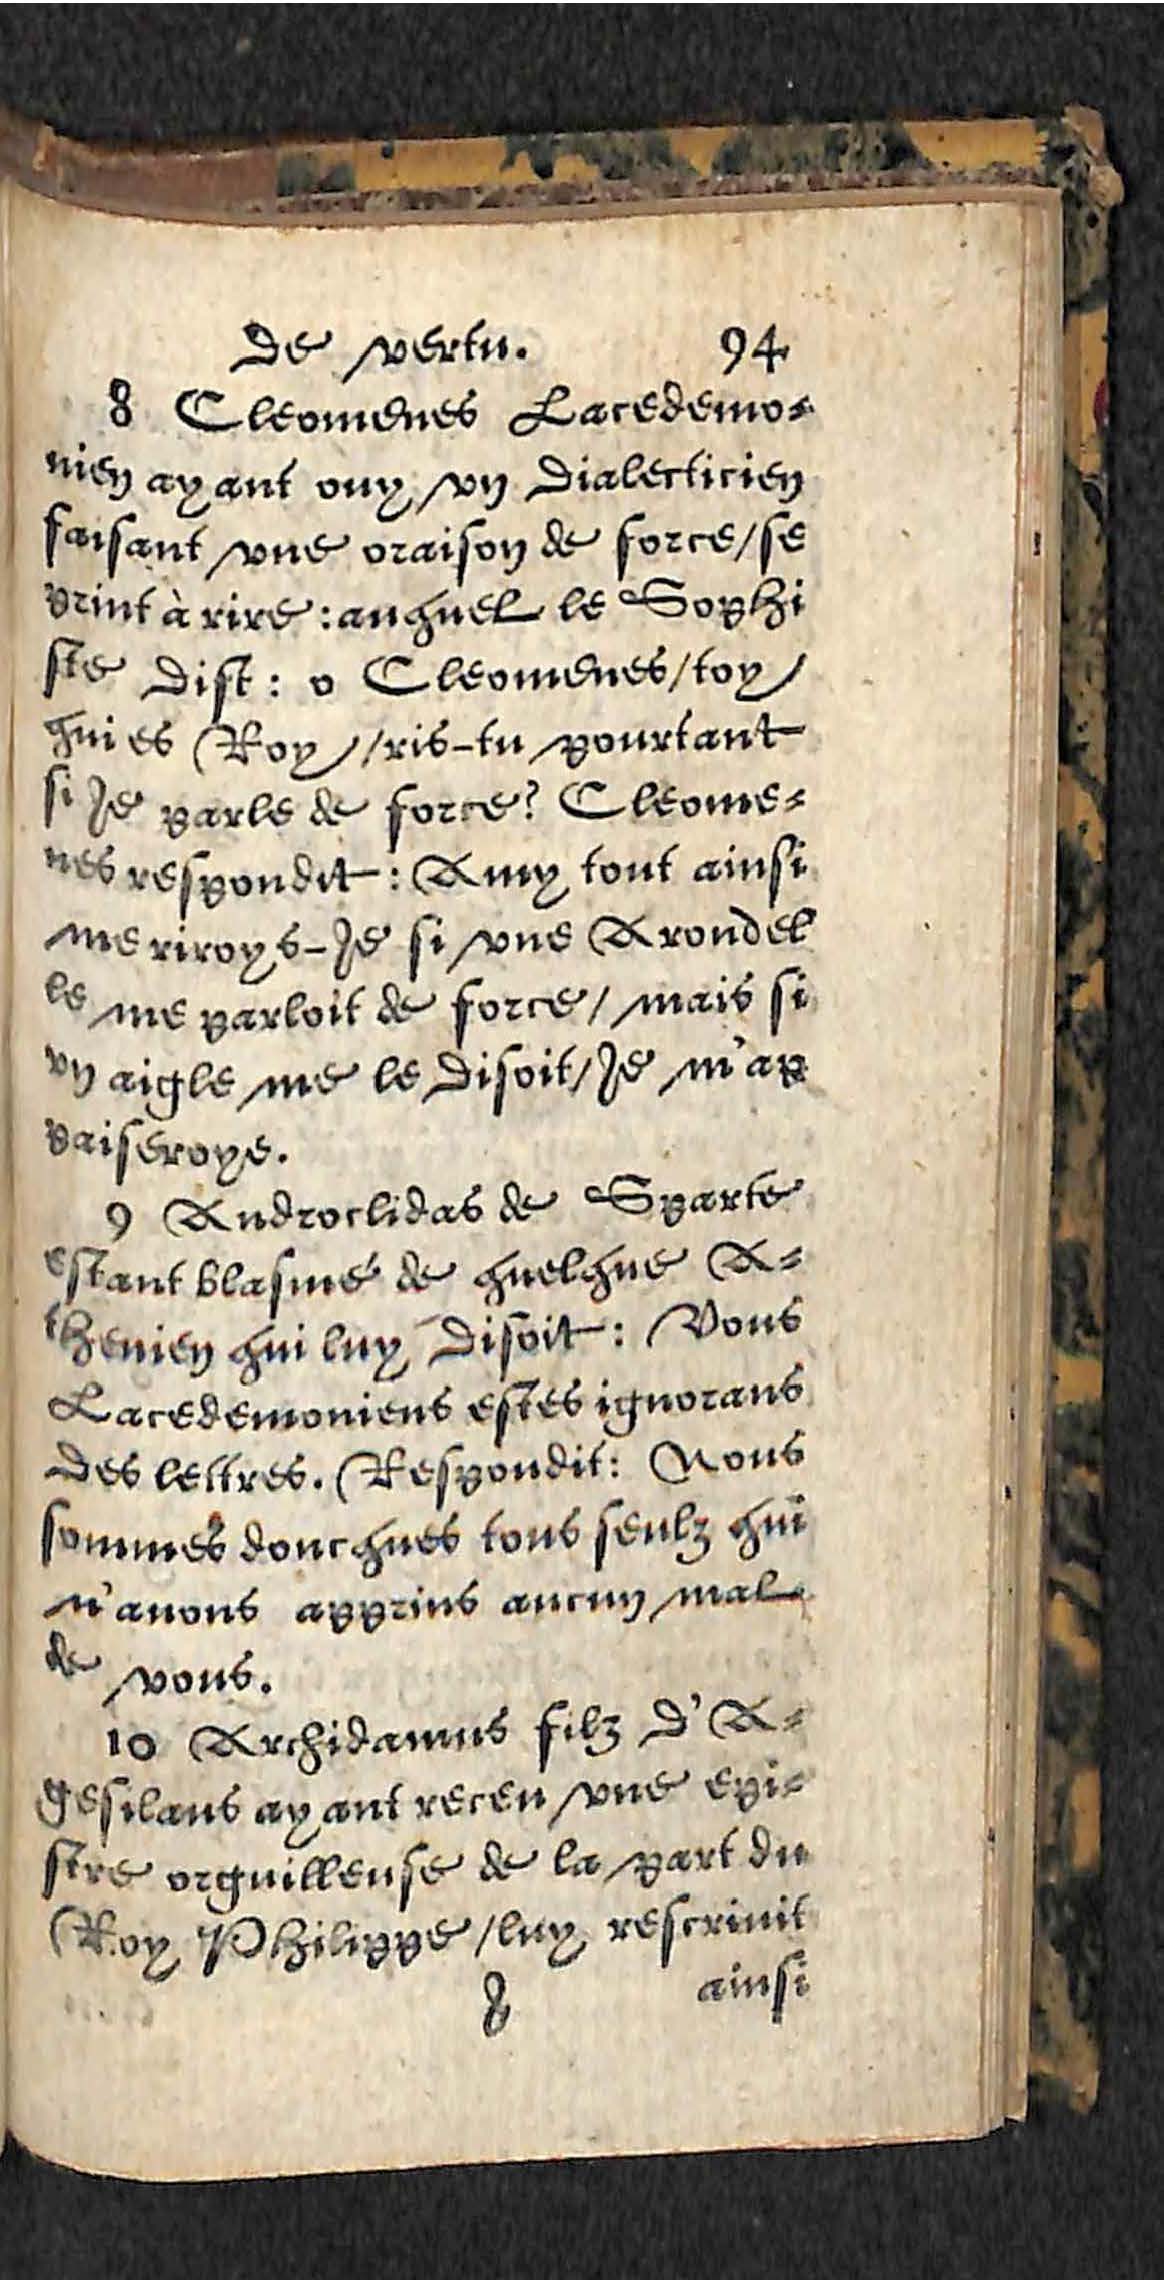 De vertu. 94
8 Cleomenes Lacedemo-
nien ayant ouy vn Dialecticien
faisant vne oraison de force/se
print à rire : auquel le Sophi
ste Dist : o Cleomenes/toy
qui es Roy/ris-tu pourtant
si Je parle de force? Cleome-
nes respondit : Amy tout ainsi
me riroys-Je si vne Arondel
le me parloit de force/ mais si
vn aigle me le Disoit/Je m'ap
paiseroye.
9 Androclidas de Sparte
estant blasmé de quelque A-
thenien qui luy Disoit : Vous
Lacedemoniens estes ignorans
Des lettres. Respondit : Nous
sommes doncques tous seulz qui
n'auons apprins aucun mal
de vous.
10 Archidamus filz D'A-
gesilaus ayant receu vne epi-
stre orguilleuse de la part du
Roy Philippe/luy rescriuit
8 ainsi